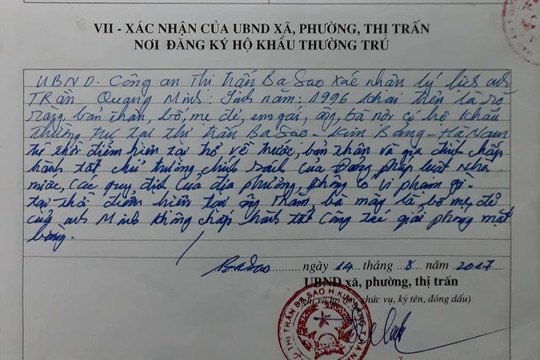 VII - XÁC NHẬN CỦA UBND XÃ, PHƯỜNG, THỊ TRẤN
NƠI ĐĂNG KÝ HỘ KHẨU THƯỜNG TRÚ
UBND. Công an Thị Trấn Ba Sao xác nhận lý lịch anh
Trần Quang Minh. Sinh năm: 1996 khai trên là rõ
ràng, bản thân, bố, mẹ đẻ, em gái, ông, bà nội có hộ khẩu
thường trú tại thị trấn Ba Sao - Kim Bảng - Hà Nam
từ thời điểm hiện tại trở về trước, bản thân và gia đình chấp
hành tốt chủ trương chính sách của Đảng pháp luật nhà
nước, các quy định của địa phương không có vi phạm gì.
tại thời điểm hiện tại ông thám, bà mây là bố mẹ đẻ
của anh Minh không chấp hành tốt công tác giải phóng mặt
bằng.
Ba Sao ngày 14 tháng 8 năm 2017
UBND xã, phường, thị trấn
chức vụ, ký tên, đóng dấu)
THỊ TRẤN BA SAO H KIM BẢNG